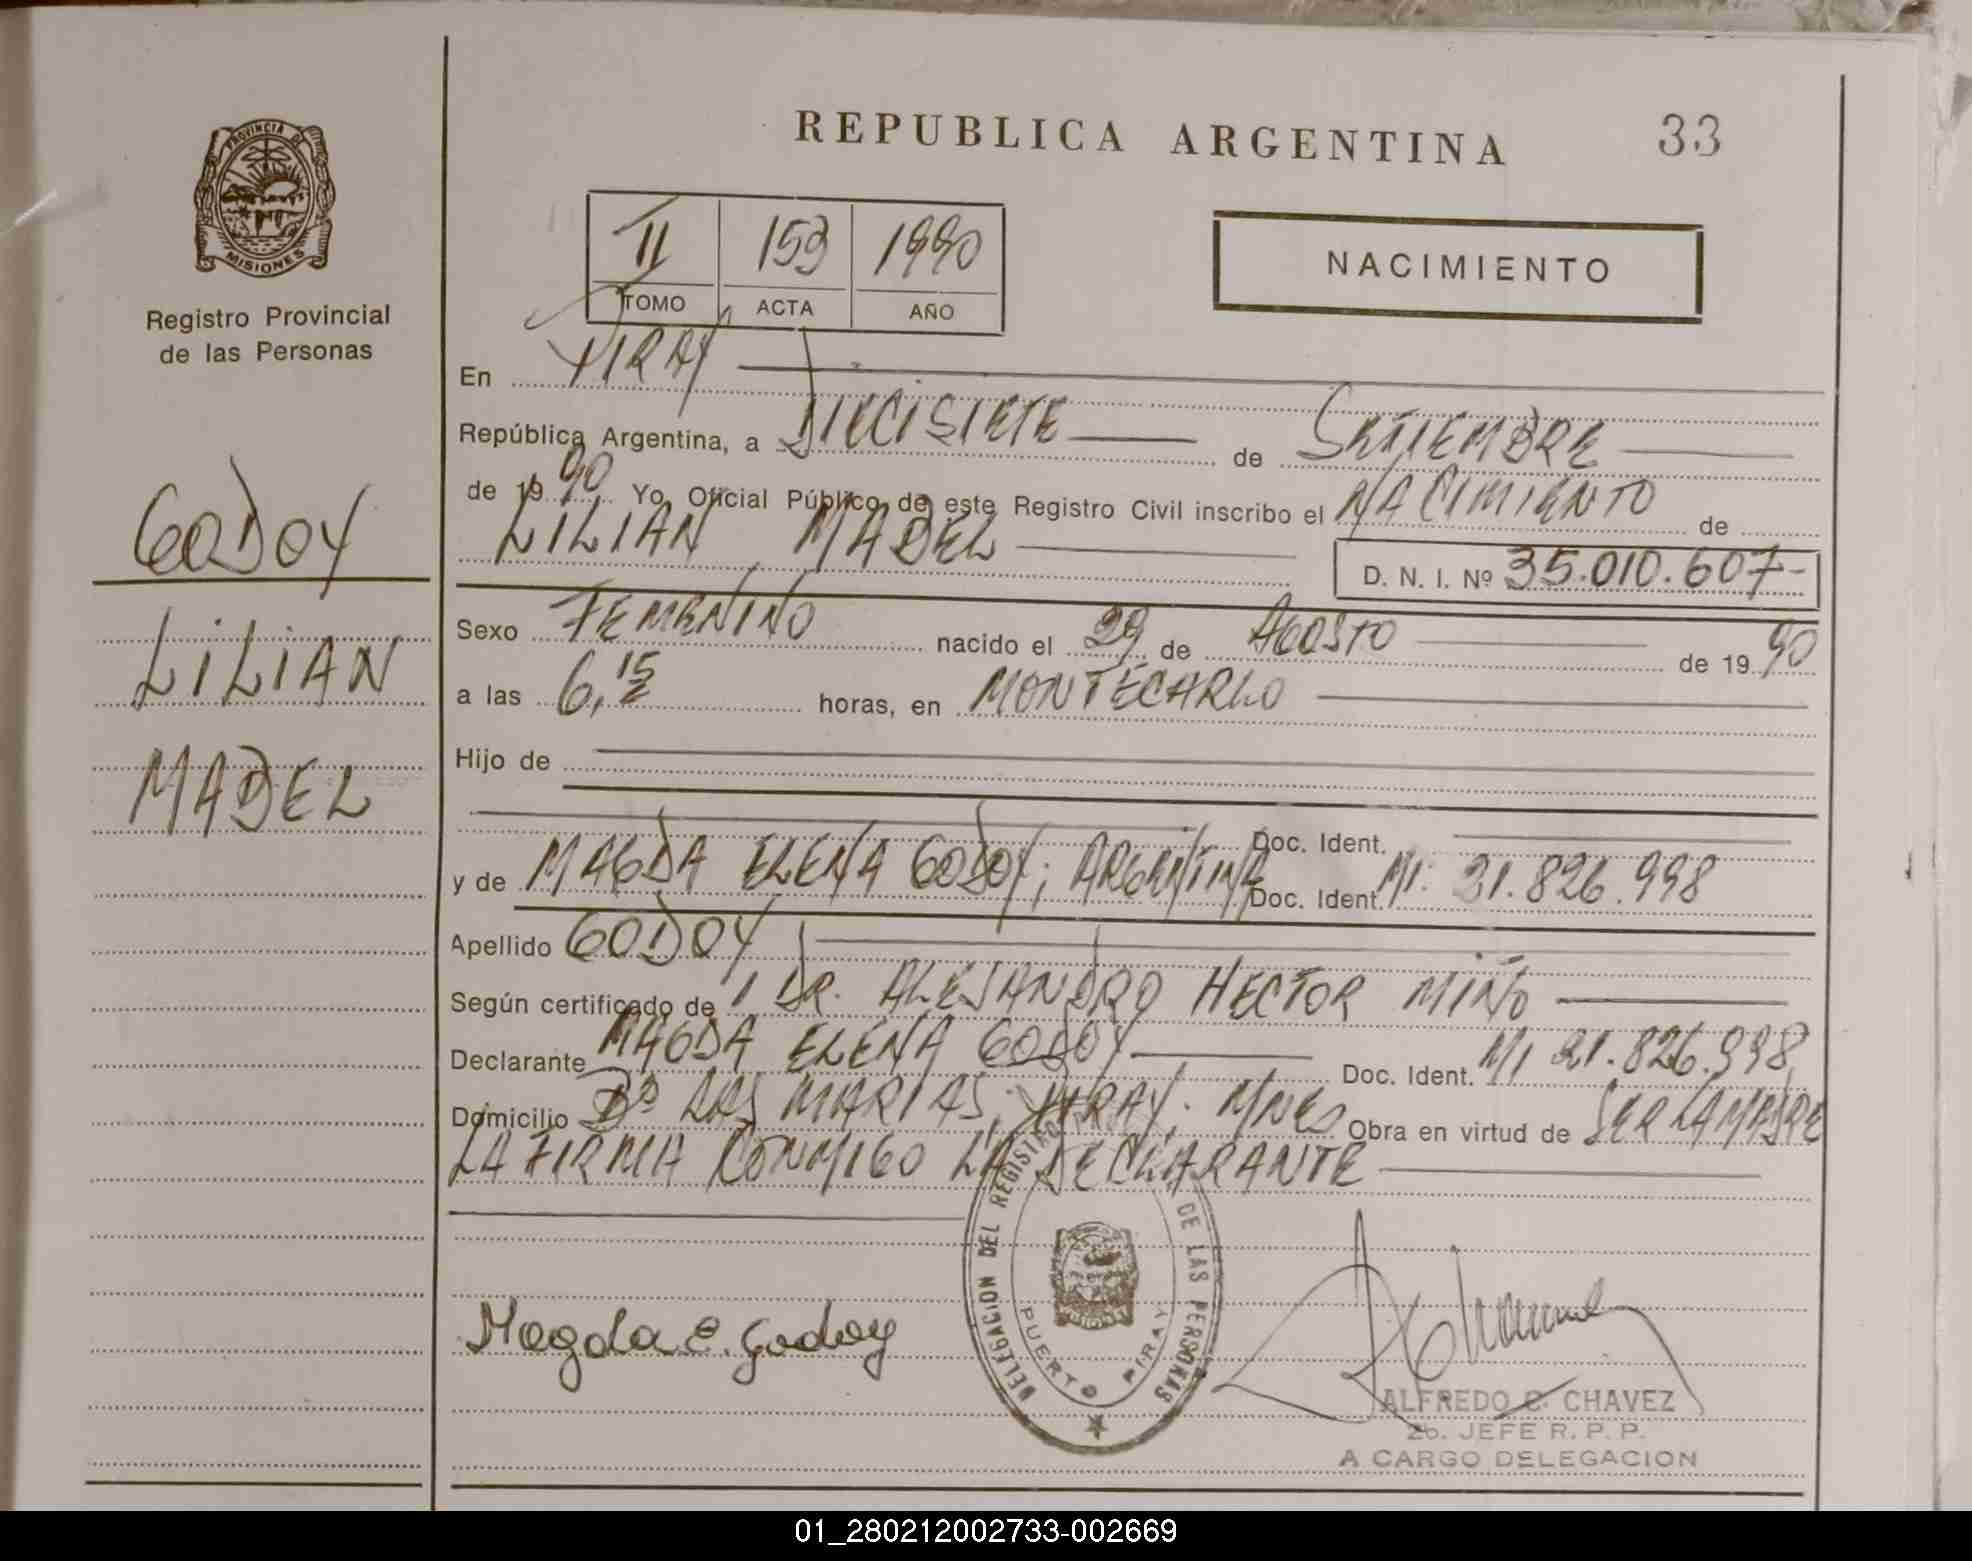 REPUBLICA ARGENTINA
33
PROVINCIA DE
MISIONES
Registro Provincial
de las Personas
II 153 1990
TOMO ACTA AÑO
NACIMIENTO
GODOY
LILIAN
MABEL
En PIRAY
República Argentina, a DIECISIETE de SETIEMBRE
de 1990 Yo, Oficial Público de este Registro Civil inscribo el NACIMIENTO de
LILIAN MABEL
D. N. I. Nº 35.010.607-
Sexo FEMENINO nacido el 29 de AGOSTO de 1990
a las 6,15 horas, en MONTECARLO
Hijo de
Doc. Ident.
y de MAGDA ELENA GODOY; ARGENTINA Doc. Ident. MI. 21.826.998
Apellido GODOY
Según certificado de DR. ALEJANDRO HECTOR MIÑO
Declarante MAGDA ELENA GODOY Doc. Ident. MI 21.826.998
Domicilio Bº LAS MARIAS, PIRAY. MNES Obra en virtud de SER LA MADRE
LA FIRMA CONMIGO LA DECLARANTE
Magda E. Godoy
DELEGACION DEL REGISTRO DE LAS PERSONAS
PUERTO PIRAY
ALFREDO C. CHAVEZ
2o. JEFE R. P. P.
A CARGO DELEGACION
01_280212002733-002669